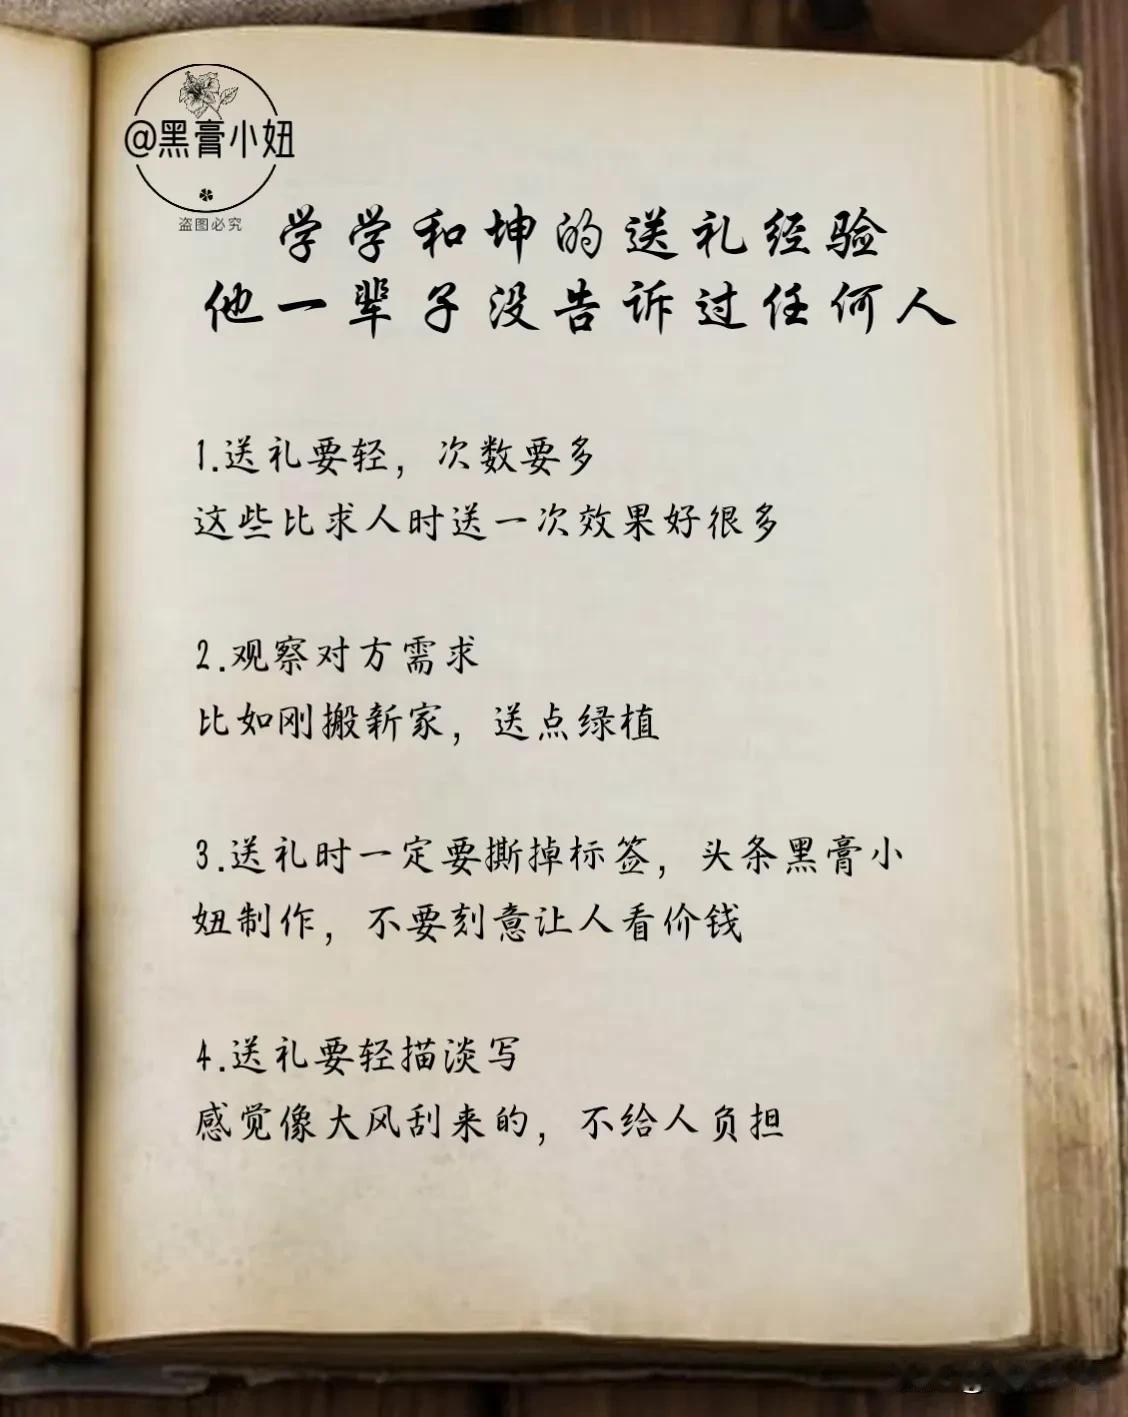 @黑膏小妞
盗图必究
学学和坤的送礼经验
他一辈子没告诉过任何人
1.送礼要轻，次数要多
这些比求人时送一次效果好很多
2.观察对方需求
比如刚搬新家，送点绿植
3.送礼时一定要撕掉标签，头条黑膏小
妞制作，不要刻意让人看价钱
4.送礼要轻描淡写
感觉像大风刮来的，不给人负担